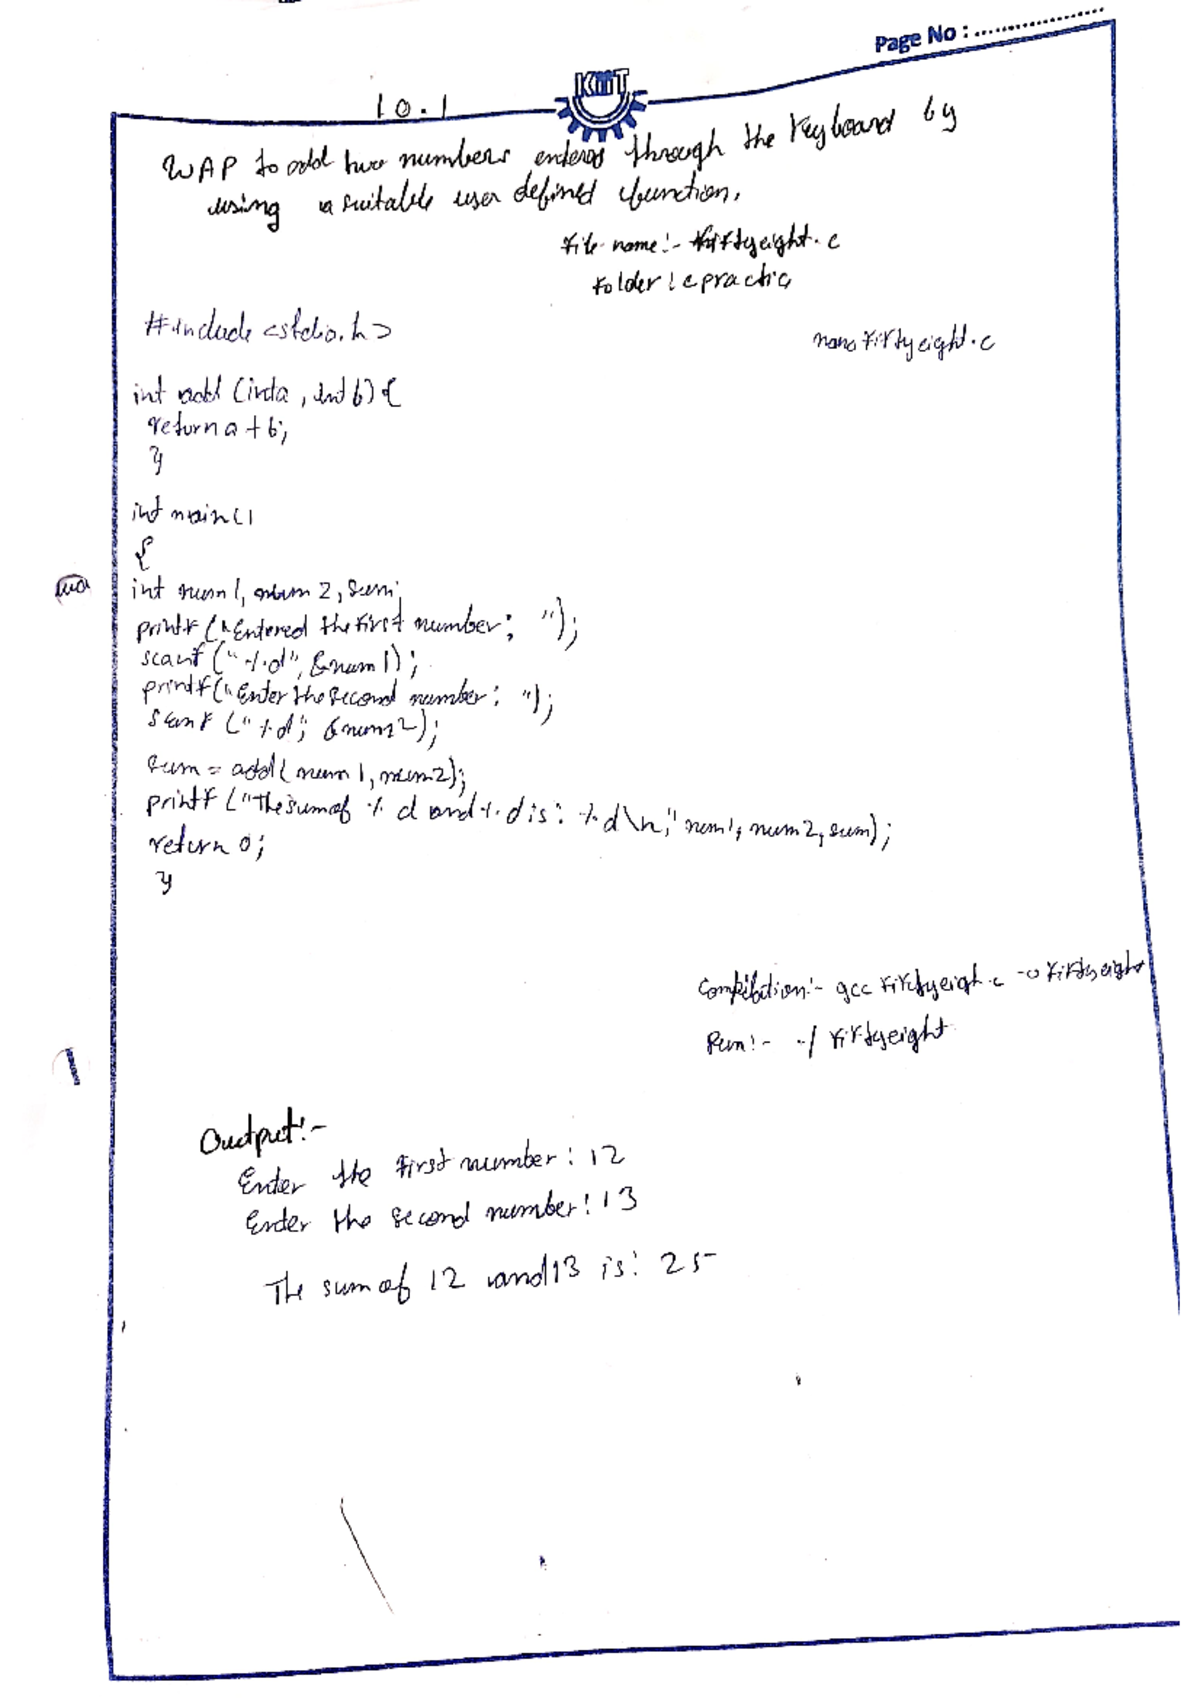 Page No : ..................
KIIT
10.1
WAP to add two numbers entered through the keyboard by
using a suitable user defined function.
File name:- fiftyeight.c
Folder : cpractic
nano fiftyeight.c
#include <stdio.h>
int add (int a , int b) {
return a + b;
}
int main ()
{
int num 1, num 2, sum;
printf ("Entered the first number: ");
scanf ("%d", &num1);
printf ("Enter the second number: ");
scanf ("%d", &num2);
sum = add( num 1, num2);
printf ("The sum of % d and %d is: %d\n," num1, num2, sum);
return 0;
}
Compilation:- gcc fiftyeigh.c -o fiftyeight
Run:- ./ fiftyeight
Output:-
Enter the first number: 12
Enter the second number: 13
The sum of 12 and 13 is: 25